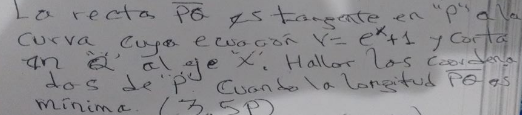 La recta PQ es tangente en "P" a la
curva cuya ecuación Y= eˣ+1 y corta
en "Q" al eje "X". Hallar las coordena
das de "P". Cuando la longitud PQ es
mínima. (3,5P)